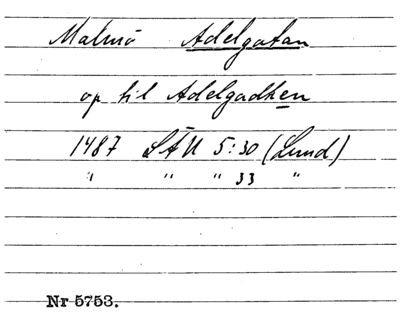 Malmö Adelgatan
op til Adelgadhen
1487 LÄU 5:30 (Lund)
" " " 33 "
Nr 5753.